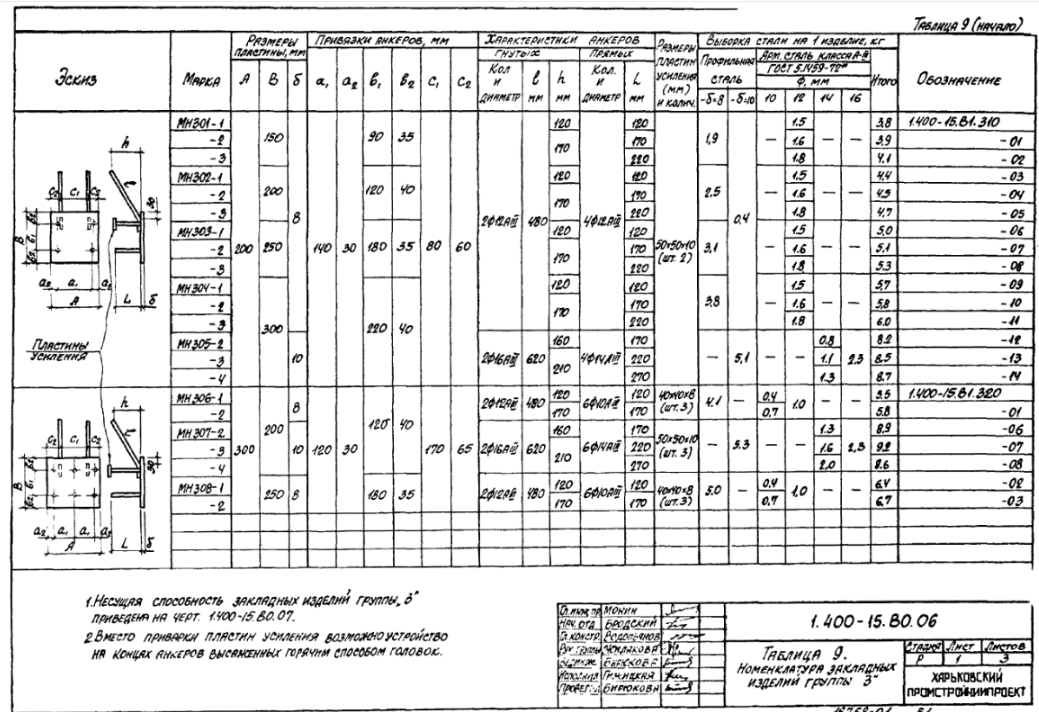 Таблица 9 (начало)
Эскиз
Марка
Размеры пластины, мм
А В δ
Привязки анкеров, мм
а₁ а₂ в₁ в₂ с₁ с₂
Характеристики анкеров
Гнутых
Кол. и диаметр
l мм
h мм
Прямых
Кол. и диаметр
L мм
Размеры пластин усиления (мм) и колич.
Выборка стали на 1 изделие, кг
Профильная сталь
-δ=8 -δ=10
Арм. сталь класса А-III
ГОСТ 5.1459-72*
Ф, мм
10 12 14 16
Итого
Обозначение
МН301-1 120 120 1.5 3.8 1.400-15.В1.310
-2 150 90 35 170 170 1,9 — 1.6 — — 3.9 -01
-3 220 1.8 4.1 -02
МН302-1 120 120 1.5 4.4 -03
-2 200 120 40 170 170 2.5 — 1.6 — — 4.5 -04
-3 8 2Ф12АIII 480 4Ф12АIII 220 0,4 1.8 4.7 -05
МН303-1 120 120 1.5 5.0 -06
-2 200 250 140 30 180 35 80 60 170 170 50х50х10 (шт. 2) 3,1 — 1.6 — — 5.1 -07
-3 220 1.8 5.3 -08
МН304-1 120 120 1.5 5.7 -09
-2 170 170 3,8 — 1.6 — — 5,8 -10
-3 300 220 40 220 1.8 6.0 -11
МН305-2 160 170 0.8 8.2 -12
-3 10 2Ф16АIII 620 210 4Ф14АIII 220 — 5,1 — — 1.1 2,3 8.5 -13
-4 270 1.3 8.7 -14
МН306-1 8 2Ф12АIII 480 120 6Ф10АIII 120 40х40х8 (шт. 3) 4.1 — 0.4 1.0 — — 5.5 1.400-15.В1.320
-2 170 170 0.7 5.8 -01
МН307-2 200 120 40 160 170 1.3 8,9 -06
-3 300 10 120 30 170 65 2Ф16АIII 620 210 6Ф14АIII 220 50х50х10 (шт. 3) — 5.3 — — 1.6 2,3 9.2 -07
-4 270 2.0 -08
МН308-1 250 8 180 35 2Ф12АIII 480 120 6Ф10АIII 120 40х40х8 (шт. 3) 5.0 — 0.4 1,0 — — 6.4 -02
-2 170 170 0.7 6.7 -03
h
с₂ с₁ с₂
30
в₂ в₁ в₂
В
а₂ а₁ а₂
А
L δ
Пластины усиления
h
с₂ с₁ с₂
30
В
а₂ а₁ а₁ а₂
А
L
1. Несущая способность закладных изделий группы „3"
приведена на черт. 1.400-15.В0.07.
2. Вместо приварки пластин усиления возможно устройство
на концах анкеров высаженных горячим способом головок.
Гл. инж. пр. Монин
Нач. отд. Бродский
Гл. констр.
Рук. группы
Бирюкова
Исполнил
Провер. Бирюкова
1.400-15.В0.06
Таблица 9.
Номенклатура закладных
изделий группы „3"
Стадия Лист Листов
Р 1 3
Харьковский
Промстройниипроект